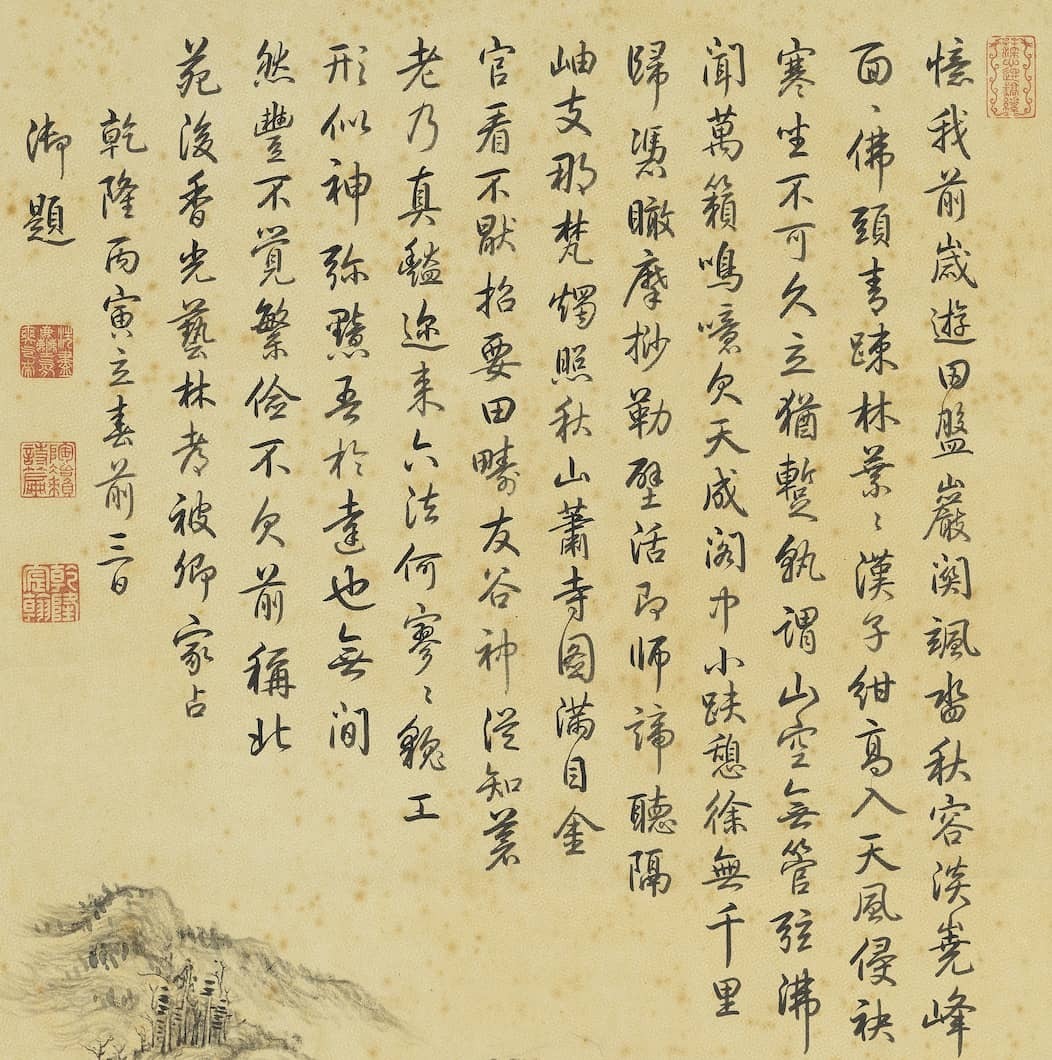 憶我前歲遊田盤巖關颯沓秋容淡嶤峰
面〻佛頭青踈林葉〻漢子紺高入天風侵袂
寒坐不可久立猶蹔孰謂山空無管弦沸
聞萬籟鳴噫欠天成閣中小趺憩徐無千里
歸憑瞰摩挱勒壁活即師諦聽隔
岫支那梵燭照秋山蕭寺圖滿目金
官看不厭招要田疇友谷神從知耄
老乃真豁迩来六法何寥〻貌工
形似神弥黯吾於達也無間
然豐不覺繁儉不欠前稱北
苑後香光藝林考被卿家占
乾隆丙寅立春前三日
御題
乾隆宸翰